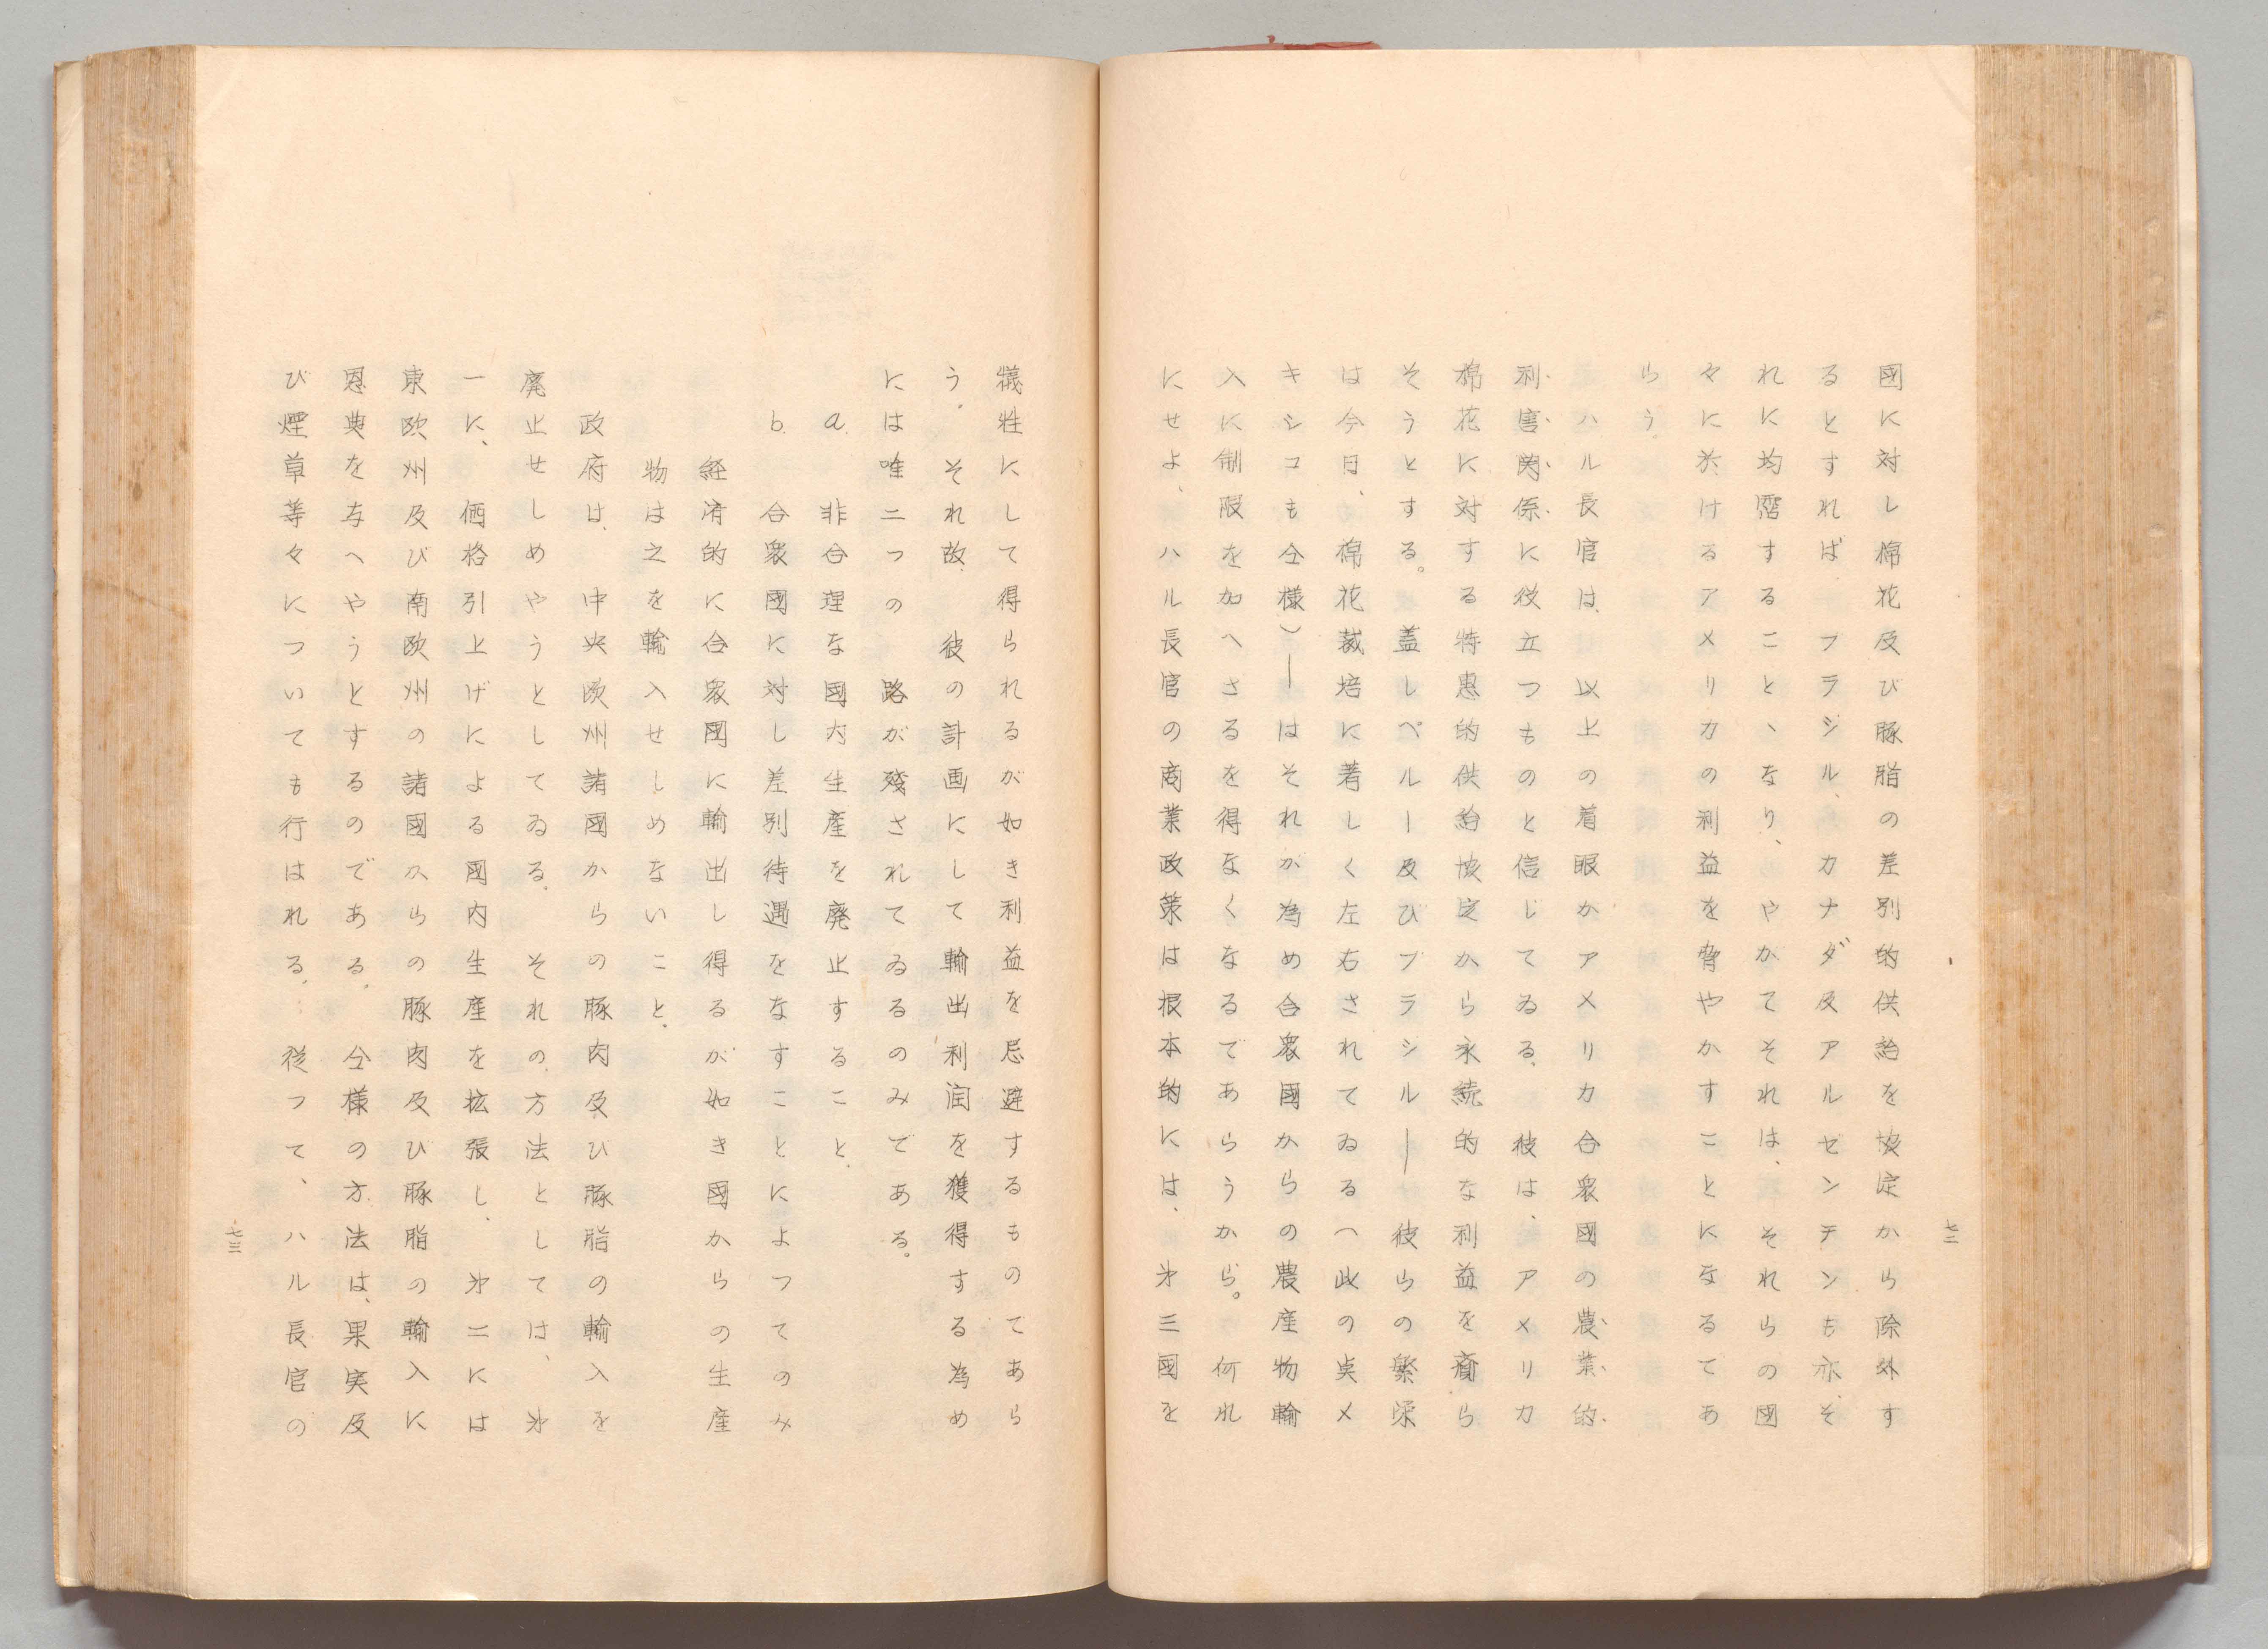 七二
國に対し棉花及び豚脂の差別的供給を協定から除外す
るとすれば ブラジル、カナダ及アルゼンチンも亦、そ
れに均霑すること、なり、やがてそれは、それらの國
々に於けるアメリカの利益を脅やかすことになるであ
らう。
ハル長官は、以上の着眼がアメリカ合衆國の農業的
利害関係に役立つものと信じてゐる。彼は、アメリカ
棉花に対する特惠的供給協定から永続的な利益を齎ら
さうとする。蓋しペルー及びブラジル―彼らの繁栄
は今日、棉花栽培に著しく左右されてゐる（此の奌メ
キシコも仝様）―はそれが為め合衆國からの農産物輸
入に制限を加へざるを得なくなるであらうから。何れ
にせよ、ハル長官の商業政策は根本的には、㐧三國を
犠牲にして得られるが如き利益を忌避するものであら
う。それ故、彼の計画にして輸出利潤を獲得する為め
には唯二つの 路が殘されてゐるのみである。
a. 非合理な國内生産を廃止すること。
b. 合衆國に対し差別待遇をなすことによつてのみ
経済的に合衆國に輸出し得るが如き國からの生産
物は之を輸入せしめないこと。
政府は、中央欧州諸國からの豚肉及び豚脂の輸入を
廃止せしめやうとしてゐる。それの方法としては、㐧
一に、価格引上げによる國内生産を拡張し、㐧二には
東欧州及び南欧州の諸國からの豚肉及び豚脂の輸入に
恩典を与へやうとするのである。仝様の方法は、果実及
び煙草等々についても行はれる。従つて、ハル長官の
七三